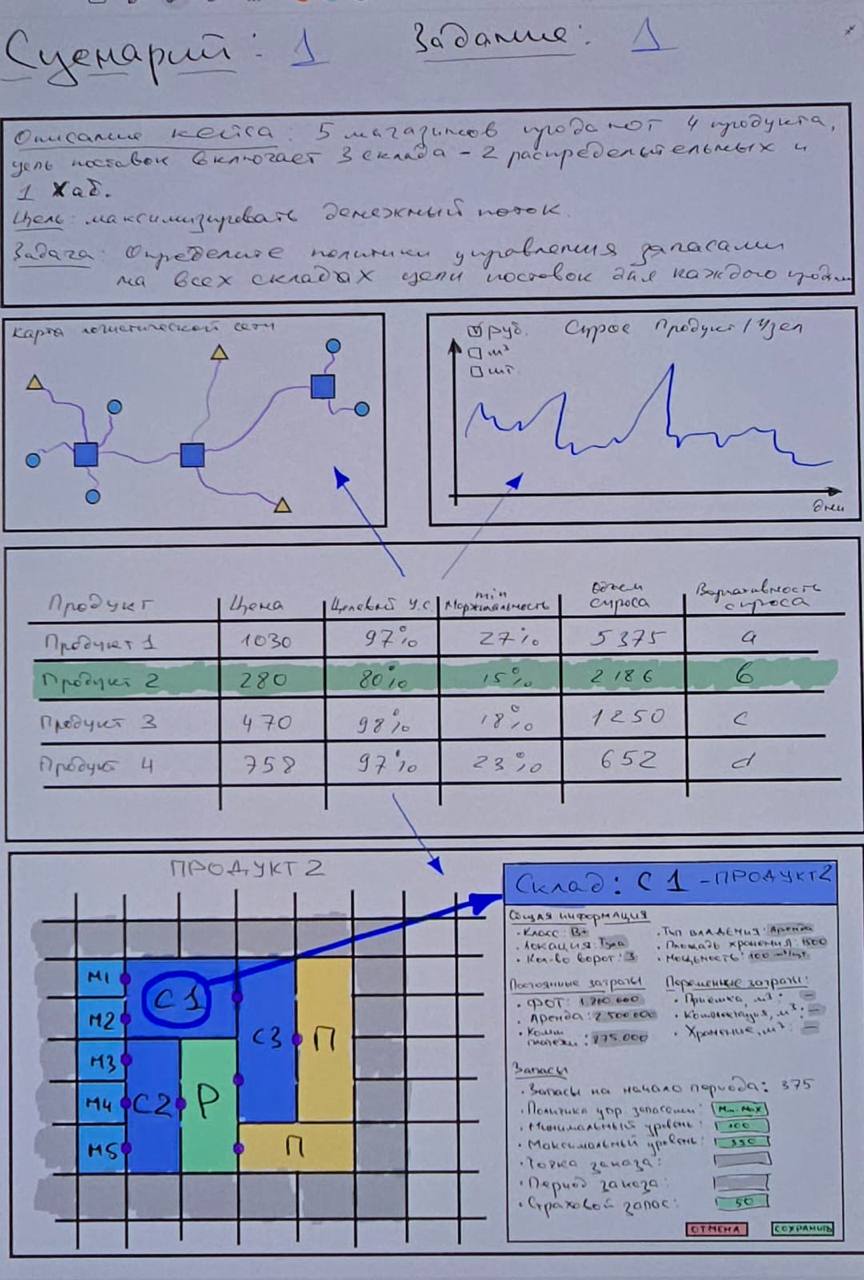 Сценарий: 1 Задание: 1
Описание кейса: 5 магазинов продают 4 продукта,
цепь поставок включает 3 склада - 2 распределительных и
1 Хаб.
Цель: максимизировать денежный поток.
Задача: Определите политики управления запасами
на всех складах цепи поставок для каждого
Карта логистической сети
руб. Спрос Продукт/Узел
м³
шт.
дни
Продукт Цена Целевой У.С. min Маржинальность Объем спроса Вариативность спроса
Продукт 1 1030 97% 27% 5375 a
Продукт 2 280 80% 15% 2186 б
Продукт 3 470 98% 18% 1250 c
Продукт 4 758 97% 23% 652 d
ПРОДУКТ 2
М1
М2
М3
М4
М5
С1
С2
С3
Р
П
П
Склад: С1 - ПРОДУКТ2
Общая информация
· Класс: B+ · Тип владения: Аренда
· Локация: Тула · Площадь хранения: 1500
· Кол-во ворот: 3 · Мощность: 100
Постоянные затраты Переменные затраты:
· ФОТ: · Приёмка, м³: —
· Аренда: 2 500 000 · Комплектация, м³: —
· Комм. платежи: 275.000 · Хранение, м³: —
Запасы
· Запасы на начало периода: 375
· Политика упр. запасами: Min-Max
· Минимальный уровень: 100
· Максимальный уровень: 350
· Точка заказа:
· Период заказа:
· Страховой запас: 50
ОТМЕНА СОХРАНИТЬ